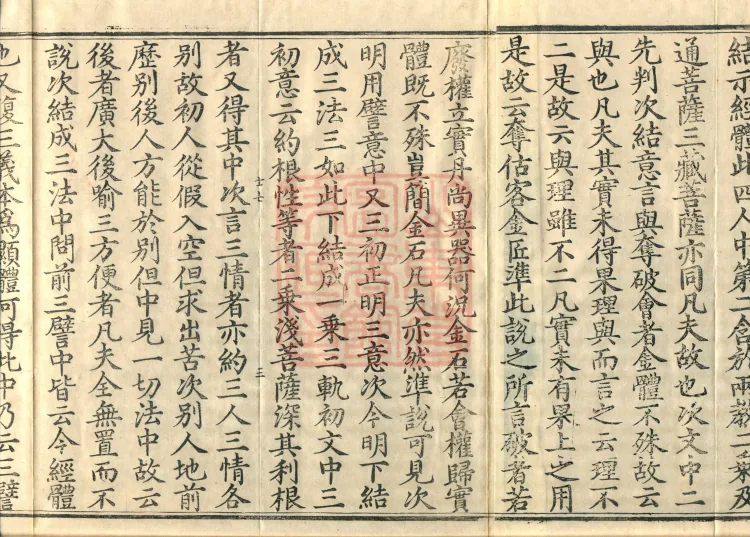 結示經體此四人中第二含於兩教二乘及
通菩薩三藏菩薩亦同凡夫故也次文中二
先判次結意言與奪破會者金體不殊故云
與也凡夫其實未得果理與而言之云理不
二是故云與理雖不二凡實未有果上之用
是故云奪估客金匠準此說之所言破者若
廢權立實丹尚異器何況金石若會權歸實
體既不殊豈簡金石凡夫亦然準說可見次
明用譬意中又三初正明三意次今明下結
成三法三如此下結成一乘三軌初文中三
初意云約根性等者二乘淺菩薩深其利根
者又得其中次言三情者亦約三人三情各
別故初人從假入空但求出苦次別人地前
歷別後人方能於別但中見一切法中故云
後者廣大後喻三方便者凡夫全無置而不
說次結成三法中問前三譬中皆云今經體
也又復三義本為顯體可得此中乃云三譬
士七
三